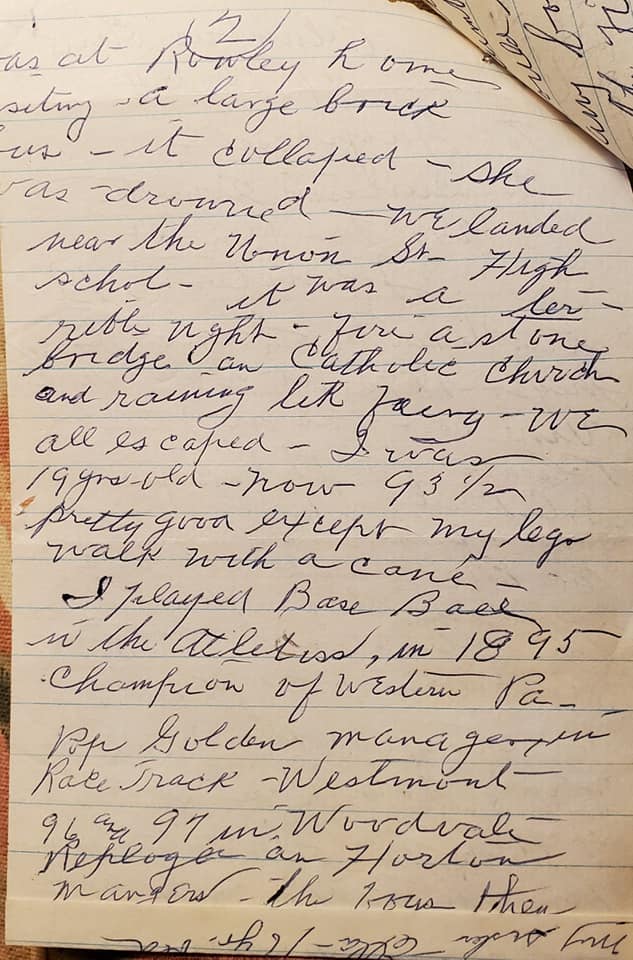 (2)
as at Rowley home
siting - a large brick
us - it collaped - she
as drowned - we landed
near the Union St- High
schol- it was a ter-
rible night - fire a stone
bridge an Catholic Church
and raining lik - we
all escaped - I was
19 yrs-old - now 93 1/2
pretty good except my legs
walk with a cane -
I played Base Ball
in the , in 1895
Champion of Western Pa-
Pop Golden manager, in
Race Track - Westmont
96 and 97 in Woodvale
Replogle an Horton
mangers - the hous then
my sister Ella - 16 yr. old